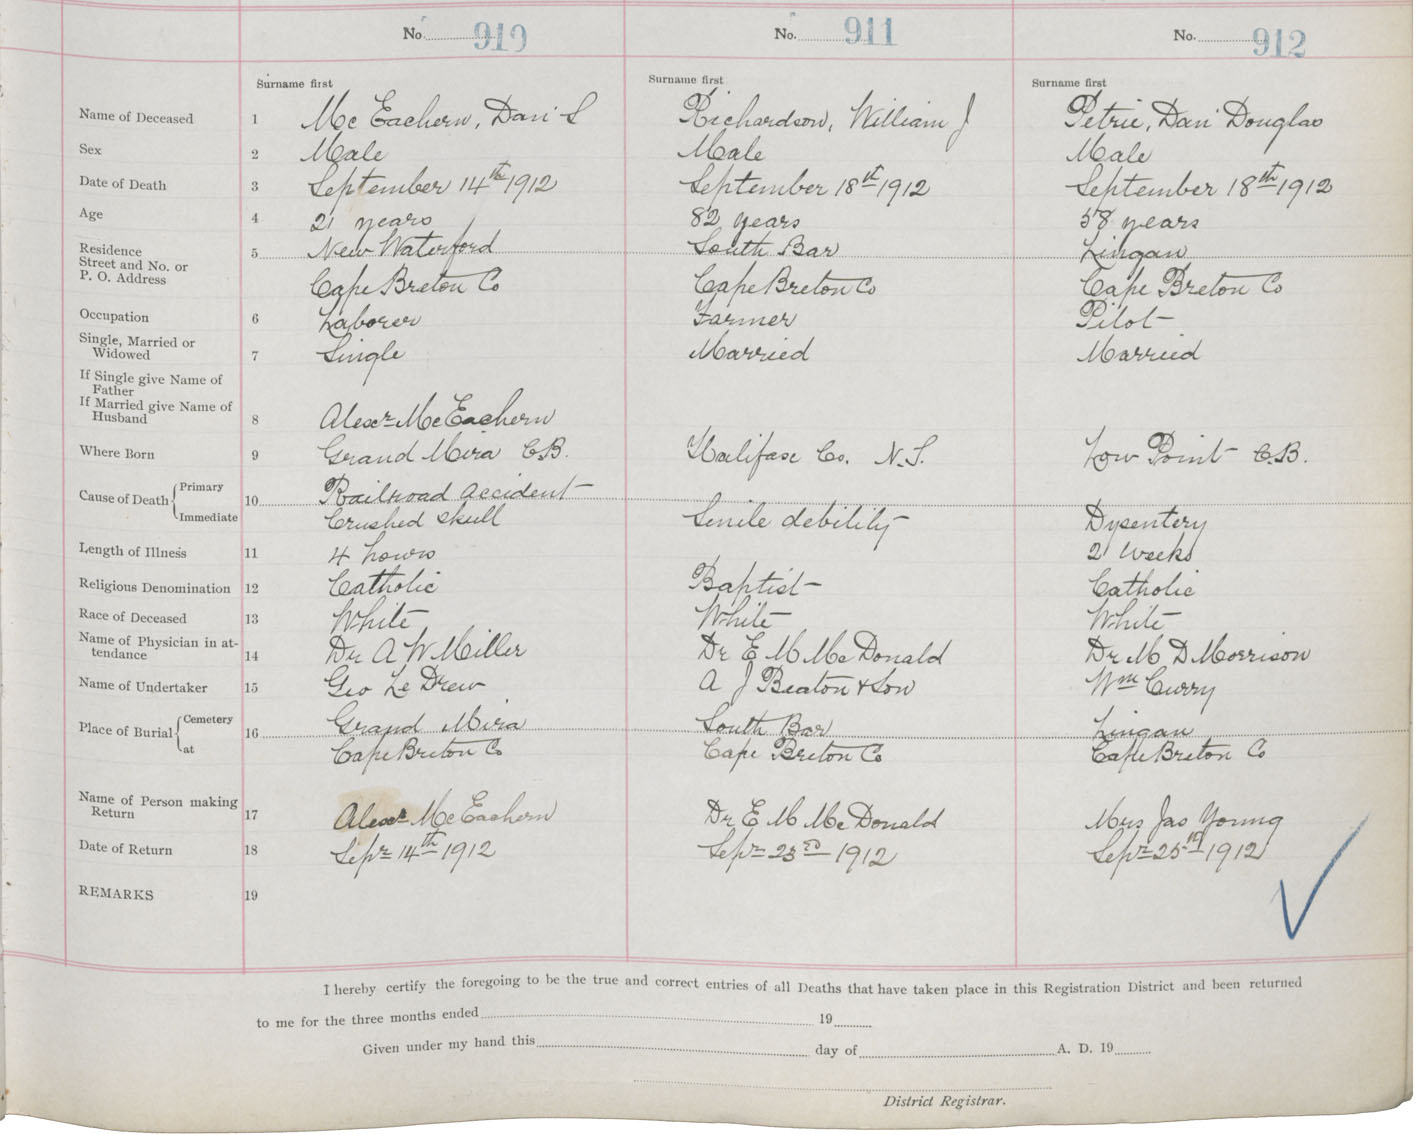 No. 910 No. 911 No. 912
Surname first Surname first Surname first
Name of Deceased 1 McEachern, Dan S Richardson, William J Petrie, Dan Douglas
Sex 2 Male Male Male
Date of Death 3 September 14th 1912 September 18th 1912 September 18th 1912
Age 4 21 years 82 years 58 years
Residence
Street and No. or 5 New Waterford South Bar Lingan
P. O. Address Cape Breton Co Cape Breton Co Cape Breton Co
Occupation 6 Laborer Farmer Pilot
Single, Married or
Widowed 7 Single Married Married
If Single give Name of
Father
If Married give Name of
Husband 8 Alexr McEachern
Where Born 9 Grand Mira C.B. Halifax Co. N.S. Low Point C.B.
Cause of Death Primary 10 Railroad accident
Immediate Crushed skull Senile debility Dysentery
Length of Illness 11 4 hours 2 weeks
Religious Denomination 12 Catholic Baptist Catholic
Race of Deceased 13 White White White
Name of Physician in at-
tendance 14 Dr A W Miller Dr E M McDonald Dr M D Morrison
Name of Undertaker 15 Geo LeDrew A J Beaton & Son Wm Curry
Place of Burial Cemetery 16 Grand Mira South Bar Lingan
at Cape Breton Co Cape Breton Co Cape Breton Co
Name of Person making
Return 17 Alexr McEachern Dr E M McDonald Mrs Jas Young
Date of Return 18 Sepr 14th 1912 Sepr 23rd 1912 Sepr 25th 1912
REMARKS 19
I hereby certify the foregoing to be the true and correct entries of all Deaths that have taken place in this Registration District and been returned
to me for the three months ended 19
Given under my hand this day of A. D. 19
District Registrar.